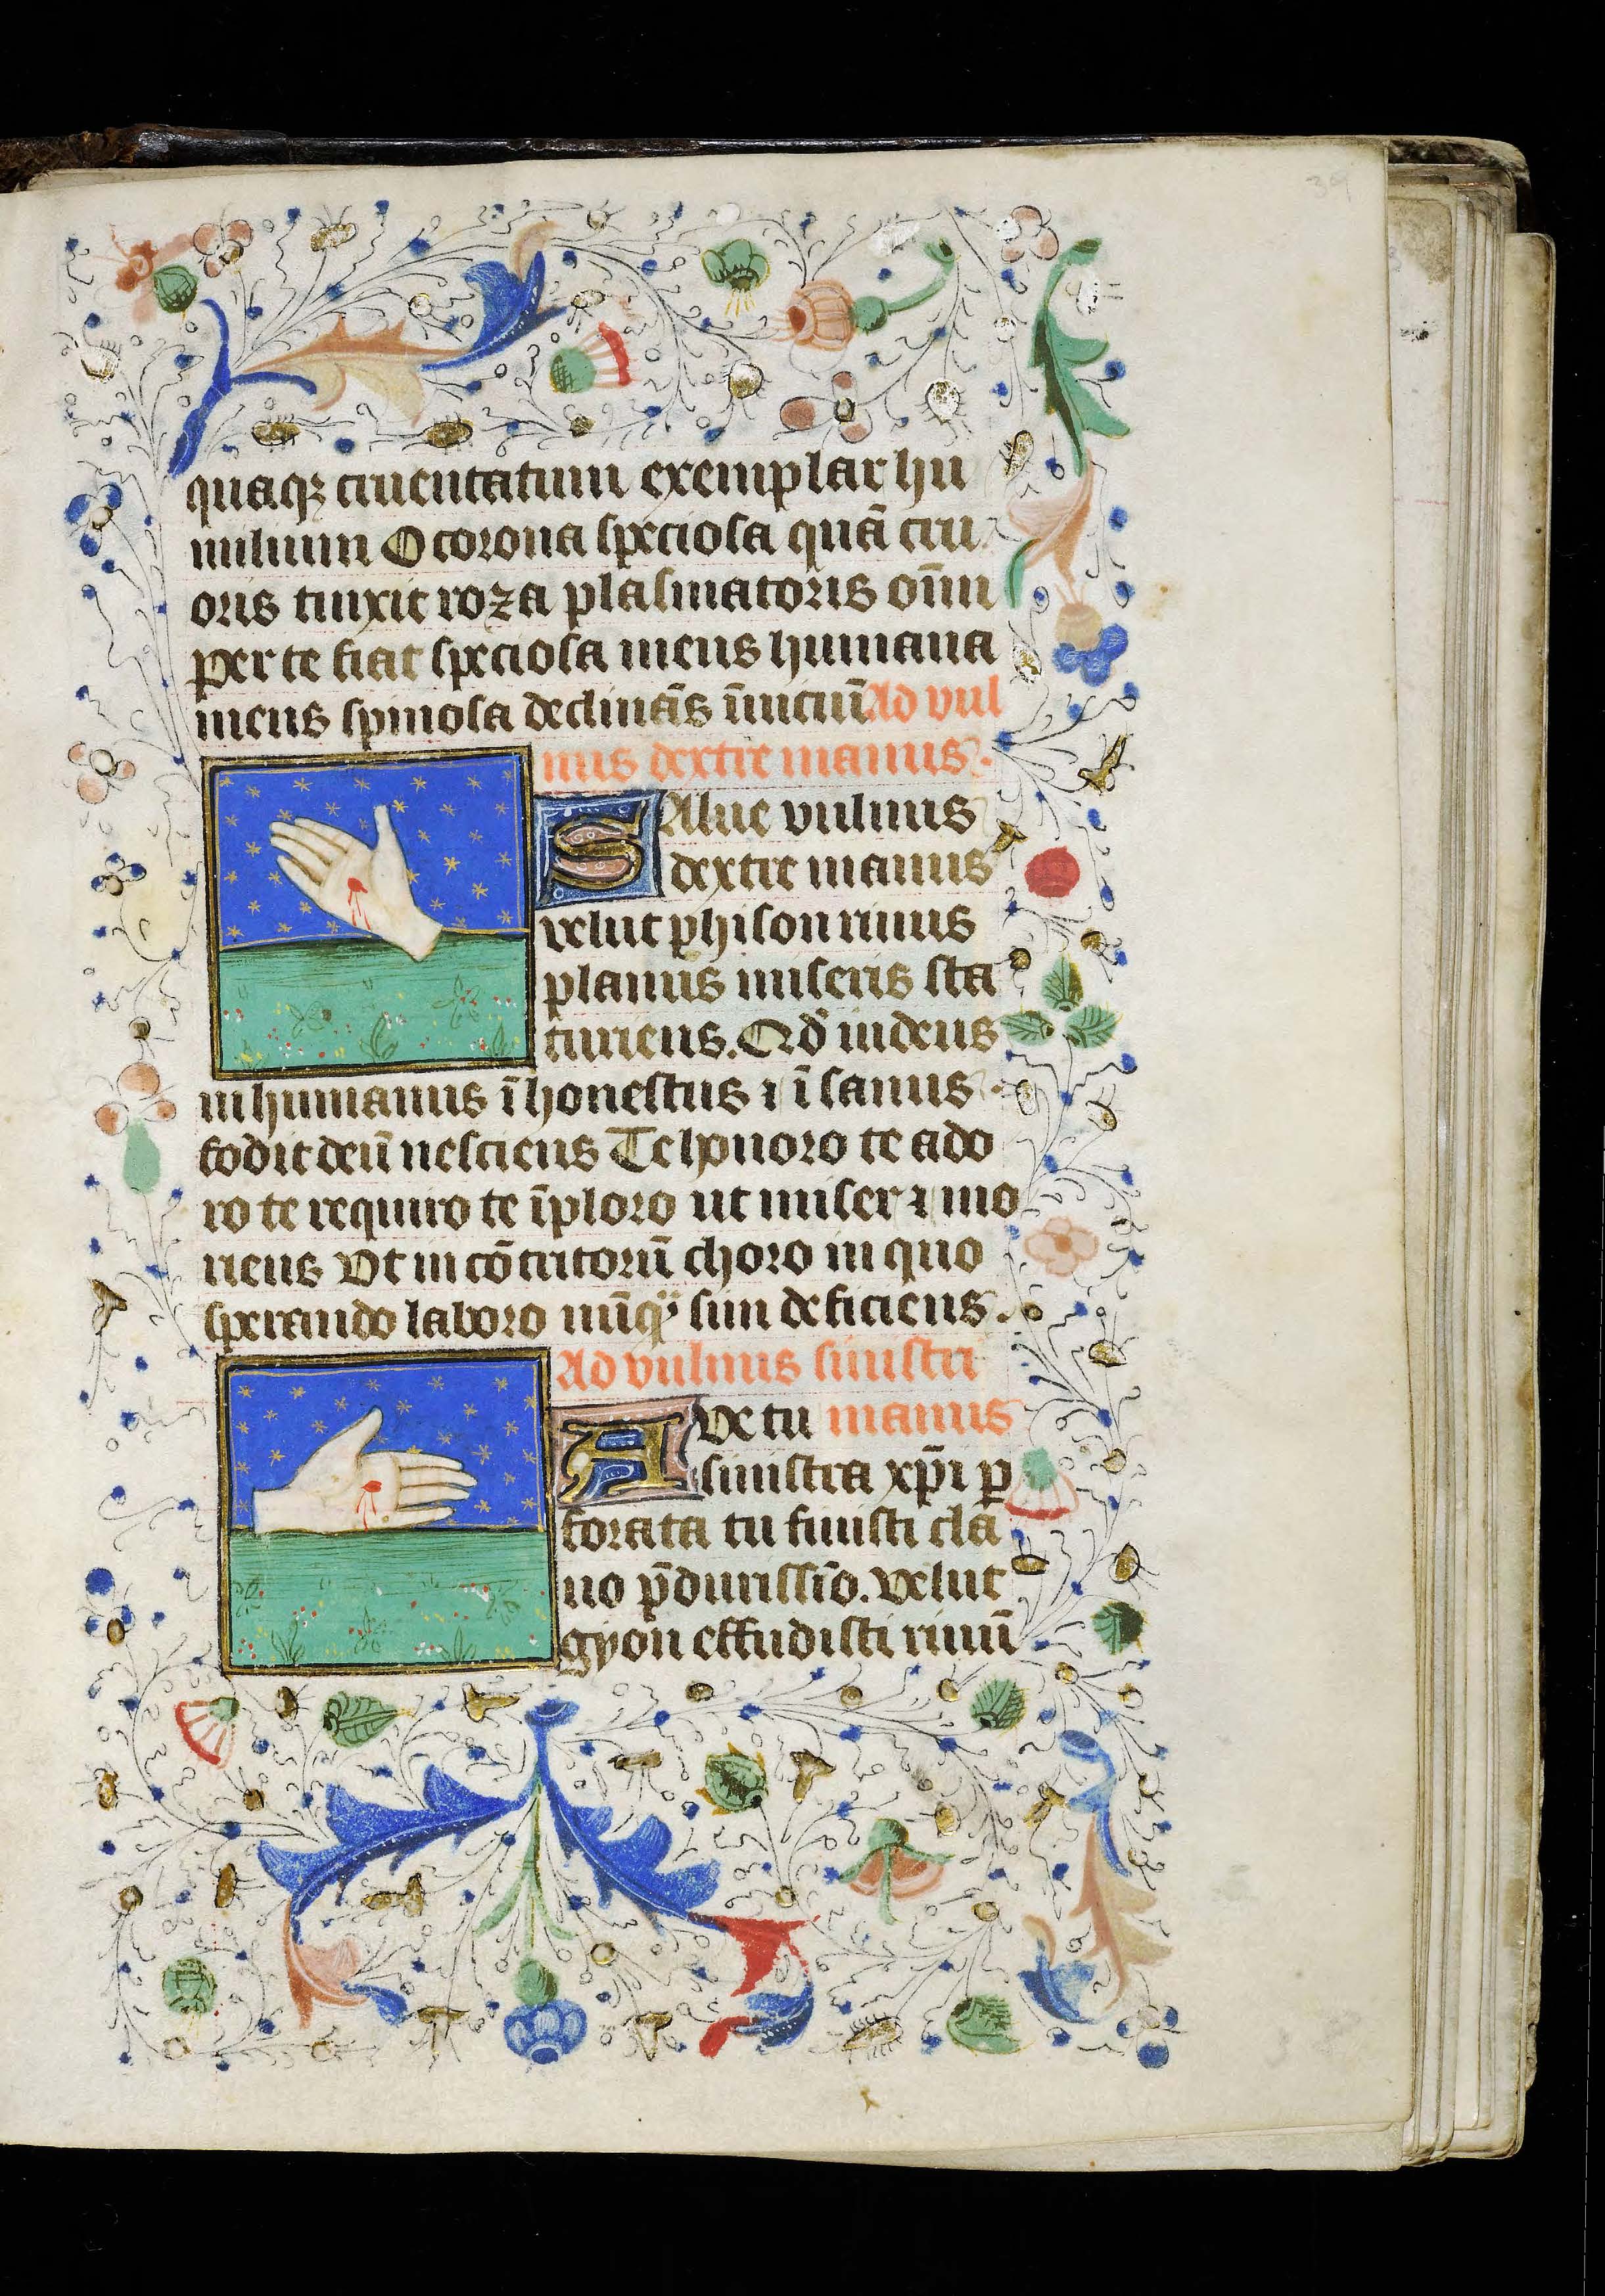 39
quaqꝫ cruentatum exemplar hu
milium O corona speciosa quā cru
oris tinxit roza plasmatoris om̄i
per te fiat speciosa mens humana
mens spinosa declinās īnicuū Ad vul
nus dextre manus.
SAlue vulnus
dextre manus
velut phison riuus
planus miseris sta
turiens. Qd̄ iudeus
inhumanus īhonestus ⁊ īsanus
fodit deū nesciens Te honoro te ado
ro te requiro te īploro ut miser ⁊ mo
riens Vt in cōtritorū choro in quo
sperando laboro nūqͣ sim deficiens.
Ad vulnus sinistri
AVe tu manus
sinistra xp̄i ꝑ
forata tu fuisti cla
uo p̄durissīo. velut
gyon effudisti riuū